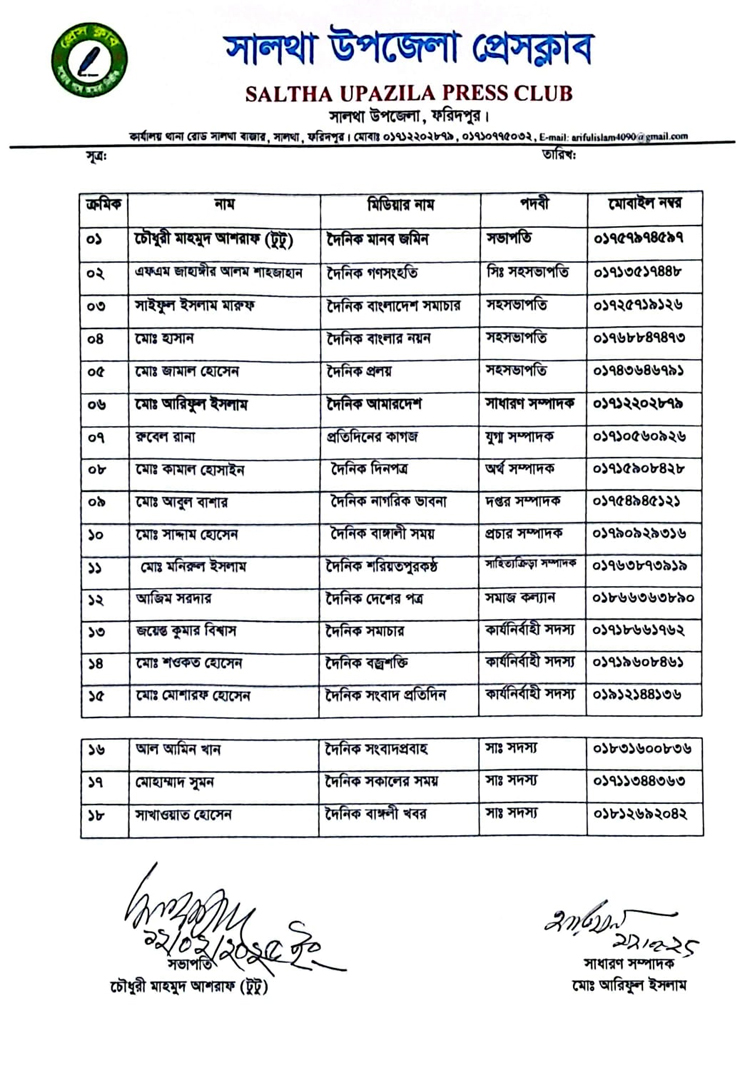 প্রেস ক্লাব
সালথা উপজেলা প্রেসক্লাব
SALTHA UPAZILA PRESS CLUB
সালথা উপজেলা, ফরিদপুর।
কার্যালয় থানা রোড সালথা বাজার, সালথা, ফরিদপুর। মোবাঃ ০১৭১২২০২৮৭৯, ০১৭১০৭৭৫০৩২, E-mail: arifulislam4090@gmail.com
সূত্র: তারিখ:
ক্রমিক নাম মিডিয়ার নাম পদবী মোবাইল নম্বর
০১ চৌধুরী মাহমুদ আশরাফ (টুটু) দৈনিক মানব জমিন সভাপতি ০১৭৫৭৯৭৪৫৯৭
০২ এফএম জাহাঙ্গীর আলম শাহজাহান দৈনিক গণসংহতি সিঃ সহসভাপতি ০১৭১৩৫১৭৪৪৮
০৩ সাইফুল ইসলাম মারুফ দৈনিক বাংলাদেশ সমাচার সহসভাপতি ০১৭২৫৭১৯১২৬
০৪ মোঃ হাসান দৈনিক বাংলার নয়ন সহসভাপতি ০১৭৬৮৮৪৭৪৭৩
০৫ মোঃ জামাল হোসেন দৈনিক প্রলয় সহসভাপতি ০১৭৪৩৬৪৬৭৯১
০৬ মোঃ আরিফুল ইসলাম দৈনিক আমারদেশ সাধারণ সম্পাদক ০১৭১২২০২৮৭৯
০৭ রুবেল রানা প্রতিদিনের কাগজ যুগ্ম সম্পাদক ০১৭১০৫৬০৯২৬
০৮ মোঃ কামাল হোসাইন দৈনিক দিনপত্র অর্থ সম্পাদক ০১৭১৫৯০৮৪২৮
০৯ মোঃ আবুল বাশার দৈনিক নাগরিক ভাবনা দপ্তর সম্পাদক ০১৭৫৪৯৪৫১২১
১০ মোঃ সাদ্দাম হোসেন দৈনিক বাঙ্গালী সময় প্রচার সম্পাদক ০১৭৯০৯২৯৩১৬
১১ মোঃ মনিরুল ইসলাম দৈনিক শরিয়তপুরকণ্ঠ সাহিত্যক্রিড়া সম্পাদক ০১৭৬৩৮৭৩৯১৯
১২ আজিম সরদার দৈনিক দেশের পত্র সমাজ কল্যান ০১৮৬৬৩৬৩৮৯০
১৩ জয়েন্ত কুমার বিশ্বাস দৈনিক সমাচার কার্যনির্বাহী সদস্য ০১৭১৮৬৬১৭৬২
১৪ মোঃ শওকত হোসেন দৈনিক বজ্রশক্তি কার্যনির্বাহী সদস্য ০১৭১৯৬০৮৪৬১
১৫ মোঃ মোশারফ হোসেন দৈনিক সংবাদ প্রতিদিন কার্যনির্বাহী সদস্য ০১৯১২১৪৪১৩৬
১৬ আল আমিন খান দৈনিক সংবাদপ্রবাহ সাঃ সদস্য ০১৮৩১৬০০৮৩৬
১৭ মোহাম্মাদ সুমন দৈনিক সকালের সময় সাঃ সদস্য ০১৭১১৩৪৪৩৬৩
১৮ সাখাওয়াত হোসেন দৈনিক বাঙ্গলী খবর সাঃ সদস্য ০১৮১২৬৯২০৪২
সভাপতি
চৌধুরী মাহমুদ আশরাফ (টুটু)
সাধারণ সম্পাদক
মোঃ আরিফুল ইসলাম